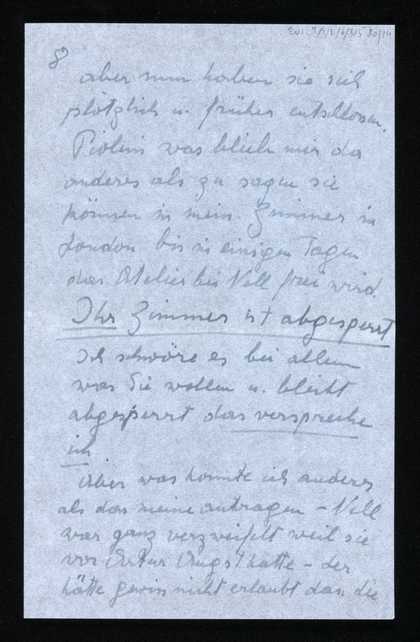 8)
aber nun haben sie sich
plötzlich u. früher entschlossen.
was blieb mir da
anderes als zu sagen sie
können in mein Zimmer in
London bis in einigen Tagen
das Atelier bei Nell frei wird.
Ihr Zimmer ist abgesperrt
Ich schwöre es bei allem
was Sie wollen u. bleibt
abgesperrt das verspreche
ich.
Aber was konnte ich anderes
als das meine antragen – Nell
war ganz verzweifelt weil sie
vor Artur Angst hatte – der
hätte gewiss nicht erlaubt dass die